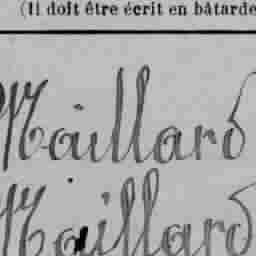 (Il doit être écrit en bâtarde
Maillard
Maillard